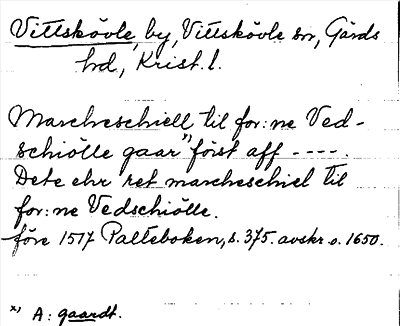 Vittskövle, by, Vittskövle sn, Gärds
hd, Krist. l.
Marcheschiell til for:ne Ved-
schiölle gaar x) först aff ----.
Dete ehr ret marcheschiel til
for:ne Vedschiölle.
före 1517 Palteboken, s. 375. avskr. o. 1650.
x) A: gaardt.